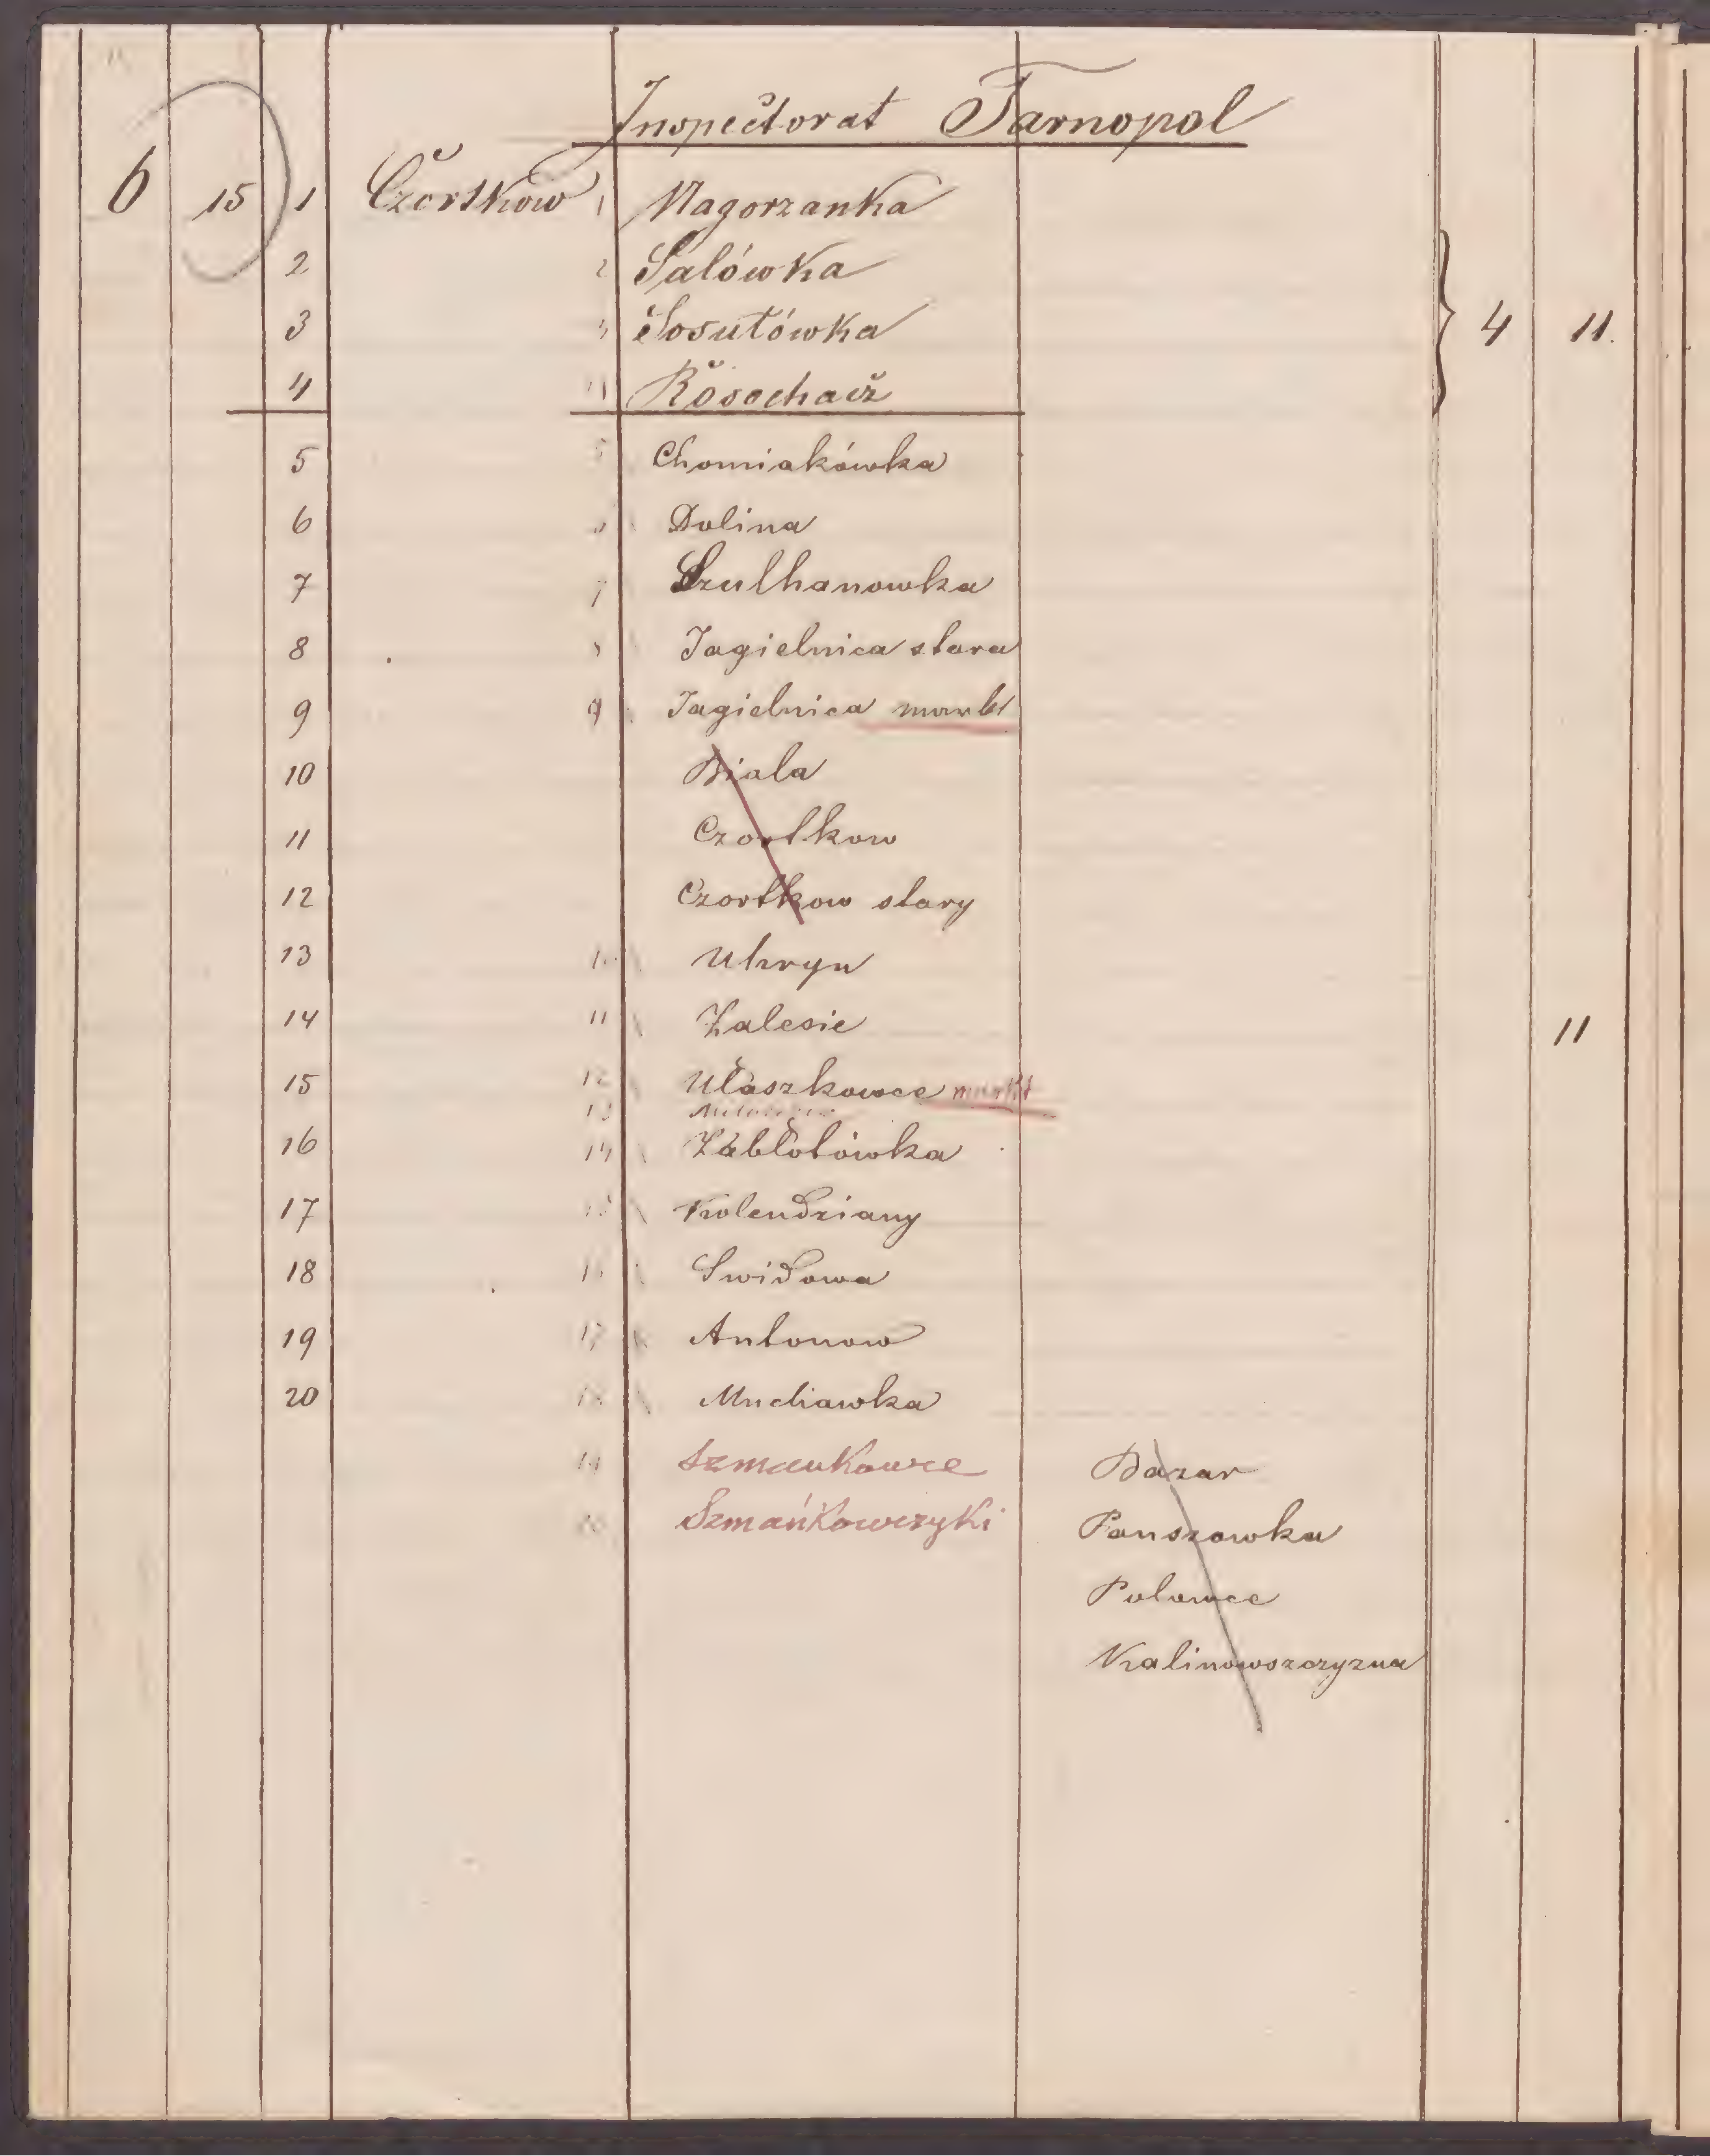 Inspectorat Tarnopol
6 15 1 Czortkow 1 Nagorzanka
2 2 Salówka
3 3 Sosułówka 4 11.
4 4 Rosochacz
5 5 Chomiakówka
6 Dolina
7 7 Szulhanowka
8 Jagielnica stara
9 9 Jagielnica markt
10 Biala
11 Czortkow
12 Czortkow stary
13 Uhryn
14 11 Zalesie 11
15 12 Ułaszkowce markt
13
16 14 Zabłotówka
17 15 Kolendziany
18 16 Swidowa
19 17 Antonow
20 18 Muchawka
19 Szmankowce Bazar
20 Szmańkowczyki Pauszowka
Polowce
Kalinowszczyzna